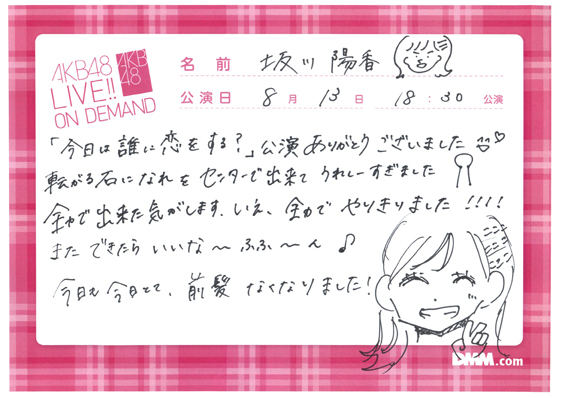 AKB48
LIVE!!
ON DEMAND
AKB
48
名前 坂川 陽香
公演日 8月 13日 18:30 公演
「今日は誰に恋をする？」公演ありがとうございました
転がる石になれをセンターで出来て うれしーすぎました
全力で出来た気がします、いえ、全力で やりきりました!!!!
また できたら いいな〜 ふふ〜ん♪
今日も 今日とて、前髪 なくなりました!
DMM.com